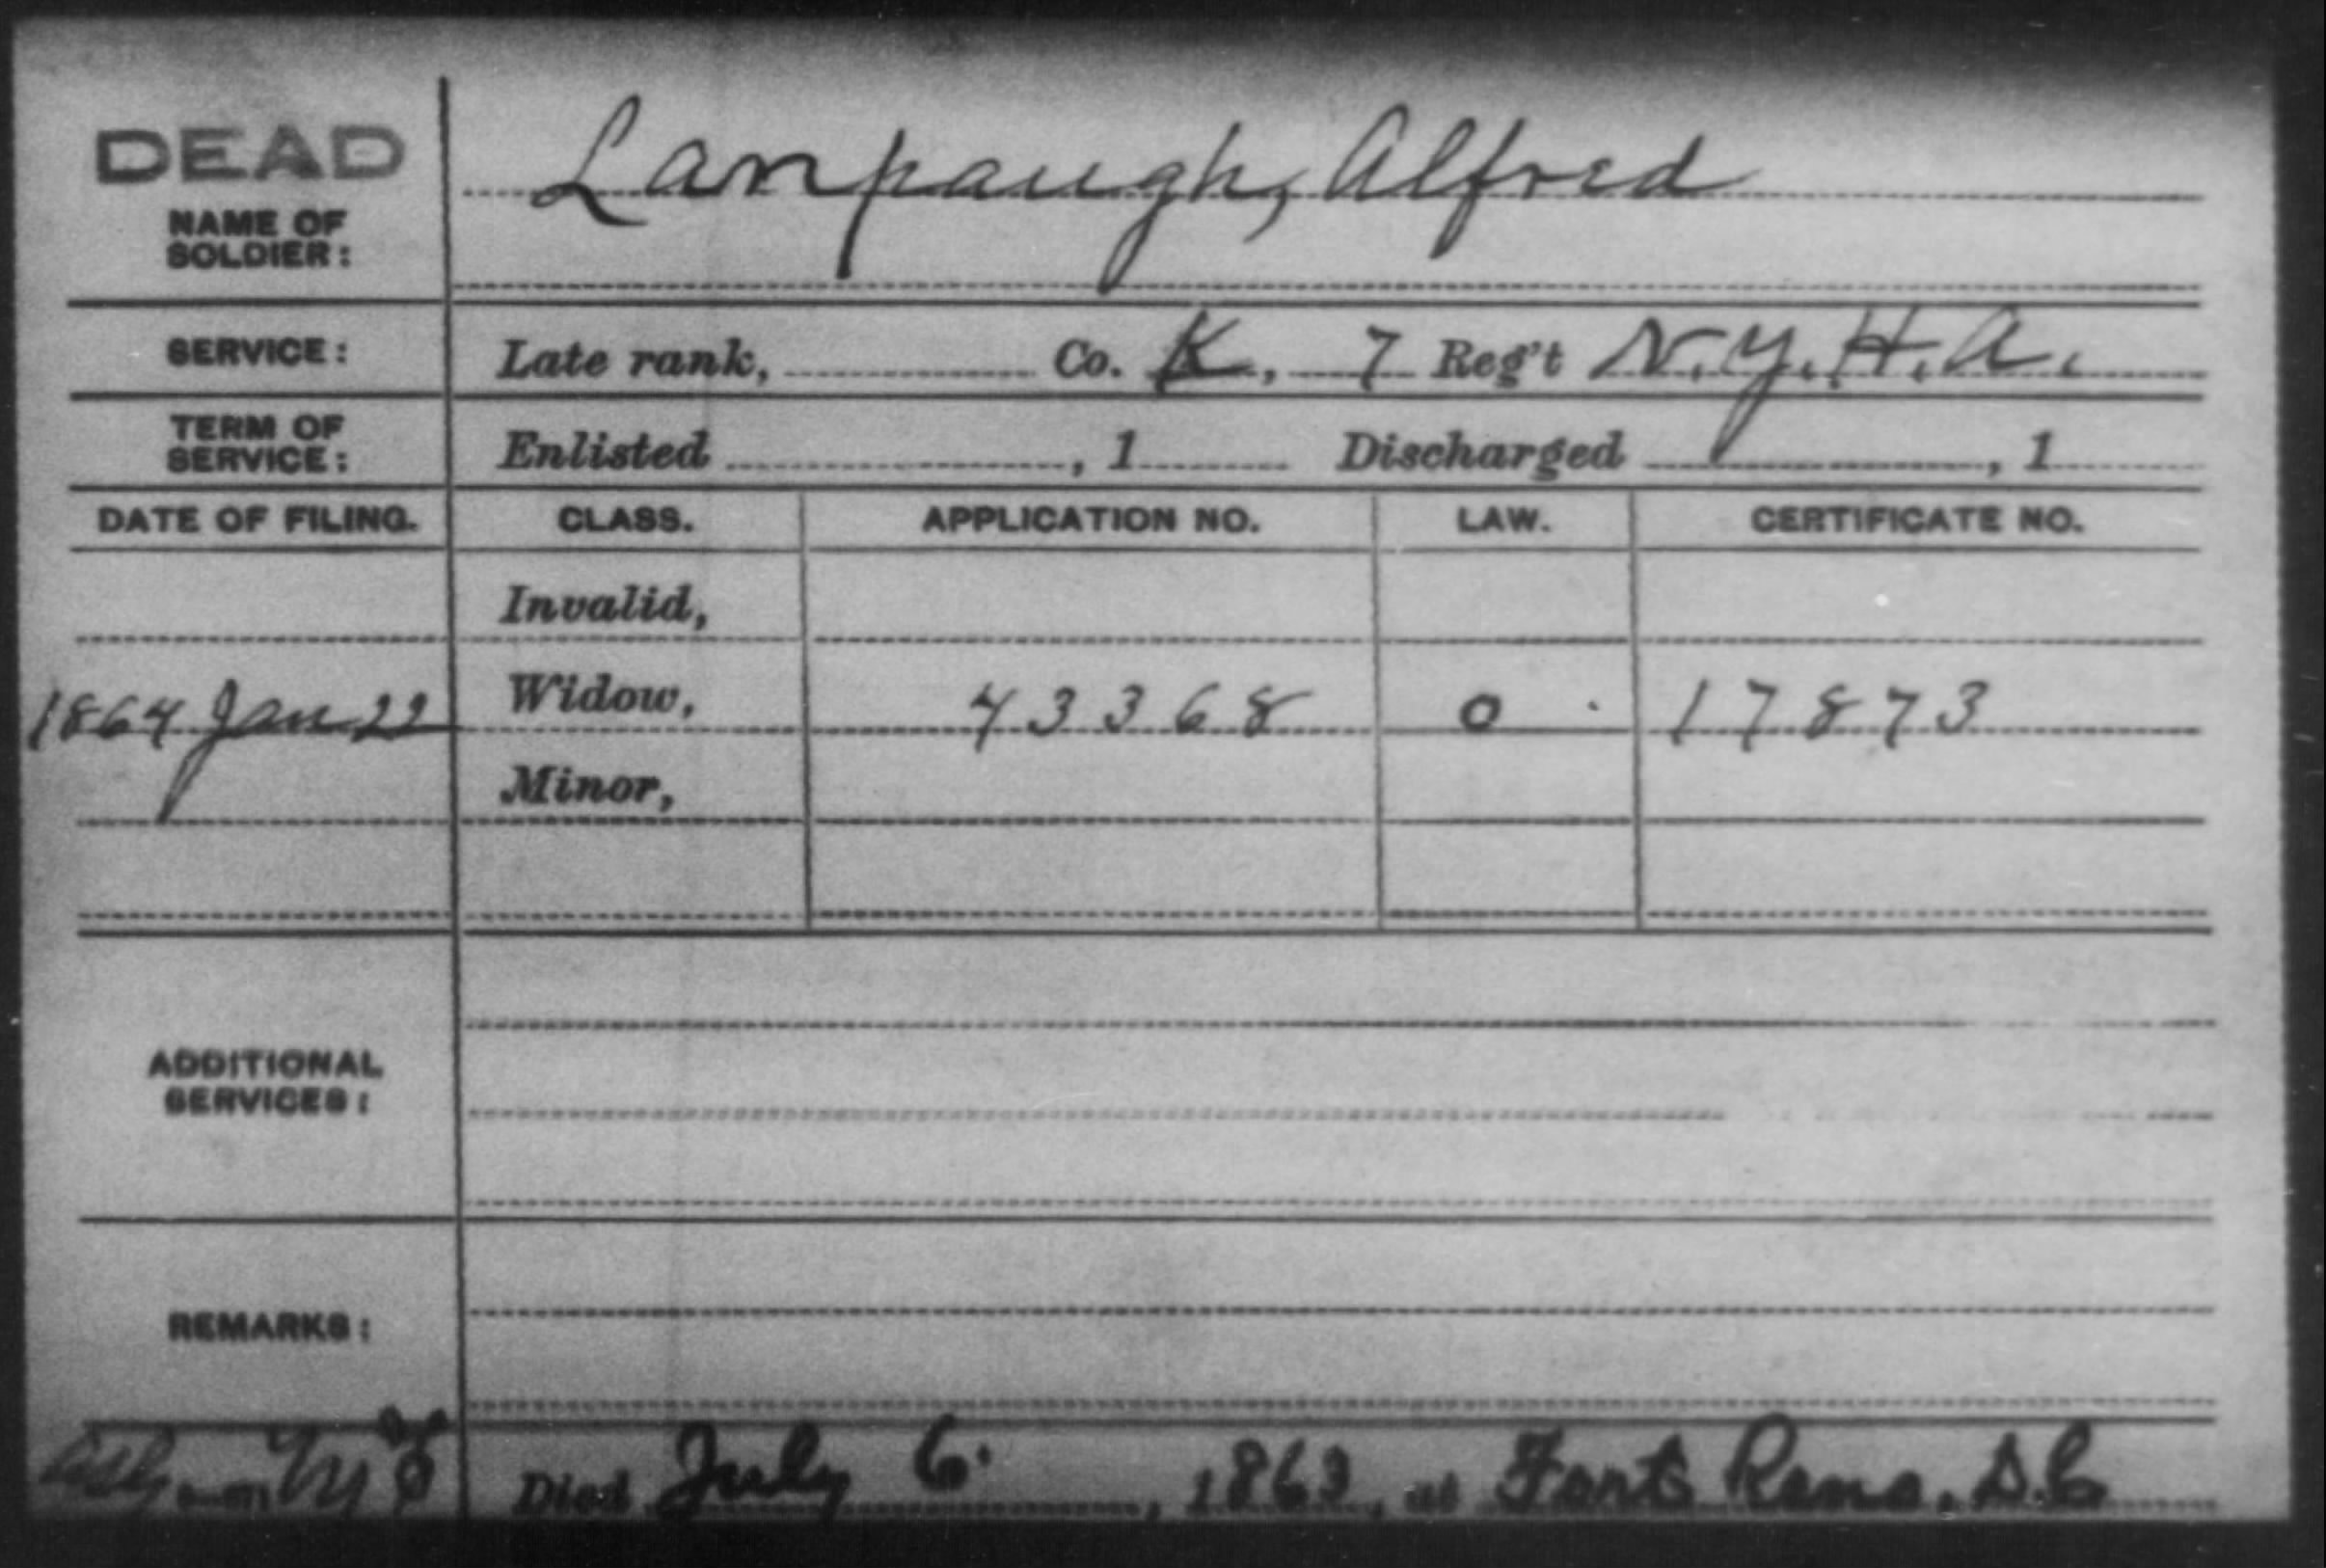 DEAD
NAME OF
SOLDIER:
Lanpaugh, Alfred
SERVICE: Late rank, Co. K, 7 Reg't N.Y.H.A.
TERM OF
SERVICE:
Enlisted , 1 Discharged , 1
DATE OF FILING. CLASS. APPLICATION NO. LAW. CERTIFICATE NO.
Invalid,
1864 Jan 22 Widow, 43368 O 17873
Minor,
ADDITIONAL
SERVICES:
REMARKS:
Died July 6. , 1863, at Fort Reno, D.C